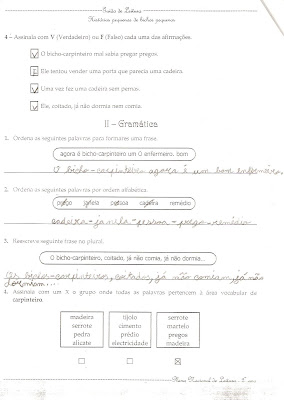 Guião de Leitura
Histórias pequenas de bichos pequenos
4 – Assinala com V (Verdadeiro) ou F (Falso) cada uma das afirmações.
V O bicho-carpinteiro mal sabia pregar pregos.
F Ele tentou vender uma porta que parecia uma cadeira.
V Uma vez fez uma cadeira sem pernas.
V Ele, coitado, já não dormia nem comia.
II – Gramática
1. Ordena as seguintes palavras para formares uma frase.
agora é bicho-carpinteiro um O enfermeiro. bom
O bicho-carpinteiro agora é um bom enfermeiro.
2. Ordena as seguintes palavras por ordem alfabética.
prego janela pessoa cadeira remédio
cadeira-janela-pessoa-prego-remédio
3. Reescreve a seguinte frase no plural.
O bicho-carpinteiro, coitado, já não comia, já não dormia...
Os bichos-carpinteiros, coitados, já não comiam, já não
dormiam...
4. Assinala com um X o grupo onde todas as palavras pertencem à área vocabular de
carpinteiro.
madeira tijolo serrote
serrote cimento martelo
pedra prédio pregos
alicate electricidade madeira
X
Plano Nacional de Leitura